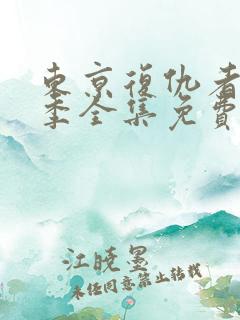 东京復仇者
季全集免费
江晓墨
未经同意禁止转载